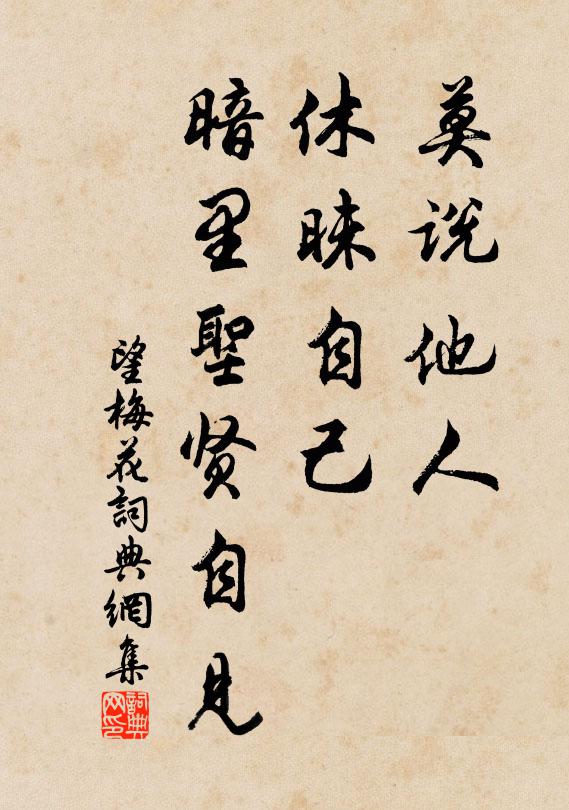 莫说他人
休昧自己
暗里聖贤自見
望梅花詞典網集
詞典
网印